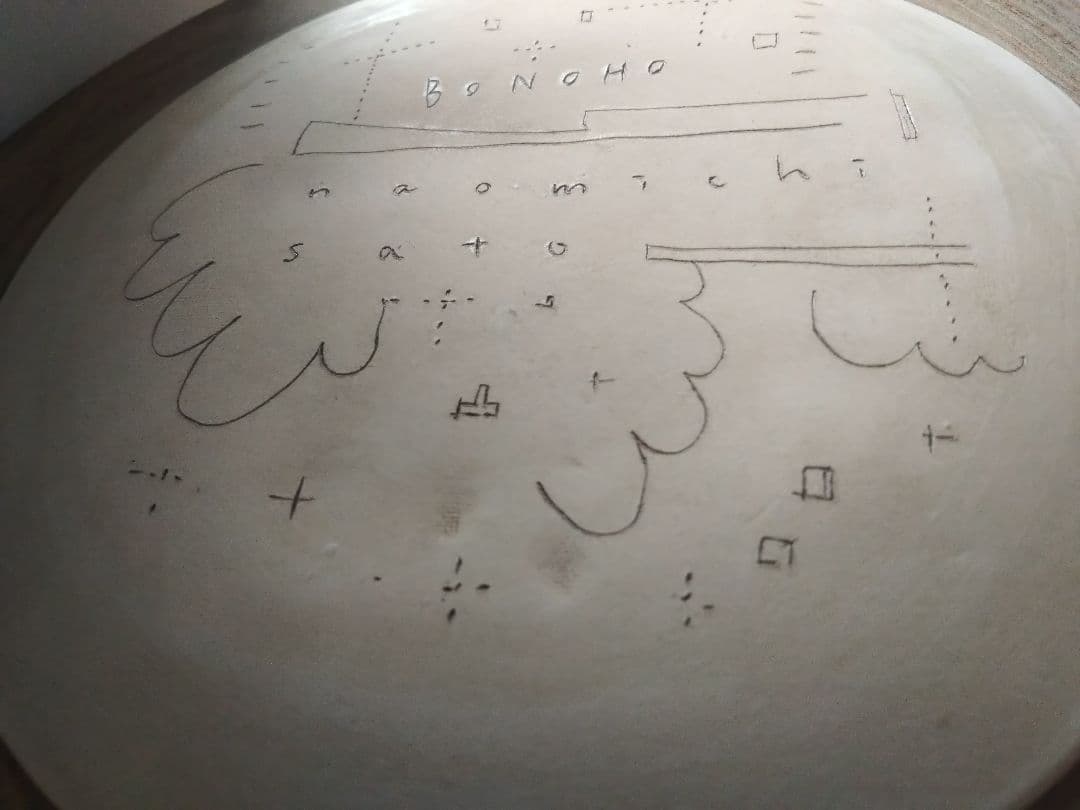 BONOHO
naomichi
sato